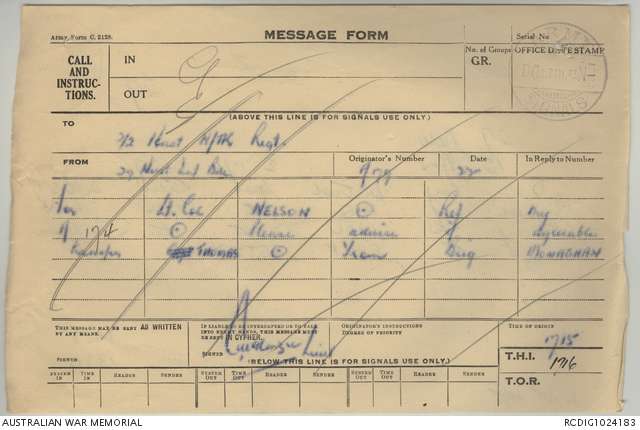 Army, Form C. 2128.
MESSAGE FORM
Serial No
CALL AND INSTRUC-TIONS.
IN
OUT
No. of Groups
GR.
OFFICE DATE STAMP
ARMY
SIGNALS
(ABOVE THIS LINE IS FOR SIGNALS USE ONLY.)
TO
Regt.
FROM
Originator's Number
Date
In Reply to Number
22
for Lt. Col NELSON ⊙ Ref my
17th ⊙ Please advise if agreeable
transfer THOMAS ⊙ from Brig MONAGHAN
THIS MESSAGE MAY BE SENT AS WRITTEN BY ANY MEANS.
SIGNED
IF LIABLE TO BE INTERCEPTED OR TO FALL INTO ENEMY HANDS, THIS MESSAGE MUST BE SENT IN CYPHER.
SIGNED
ORIGINATOR'S INSTRUCTIONS DEGREE OF PRIORITY
TIME OF ORIGIN
1715
T.H.I.
1716
T.O.R.
(BELOW THIS LINE IS FOR SIGNALS USE ONLY.)
SYSTEM IN TIME IN READER SENDER SYSTEM OUT TIME OUT READER SENDER SYSTEM OUT TIME OUT READER SENDER
AUSTRALIAN WAR MEMORIAL
RCDIG1024183